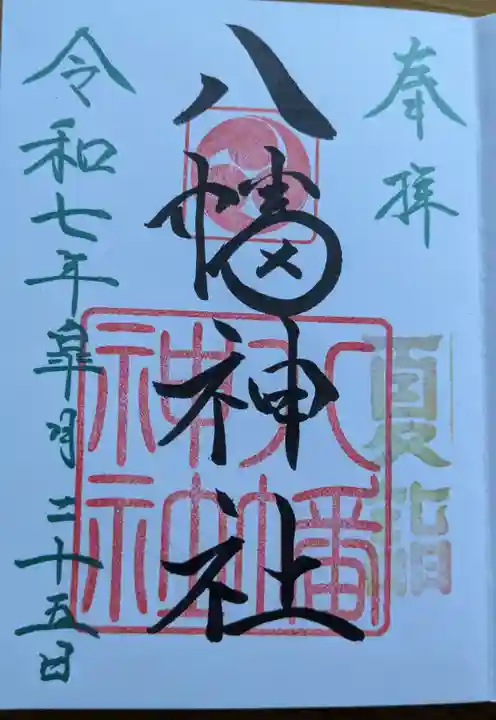 奉拝
夏詣
八幡神社
八幡
神社
令和七年皐月二十五日